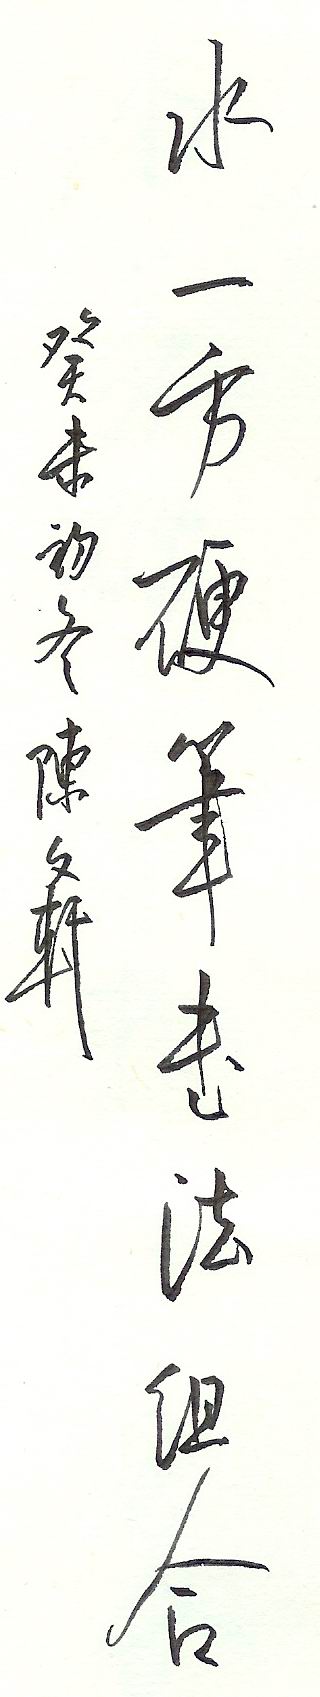 水一方硬筆书法组合
癸未初冬陳文軒